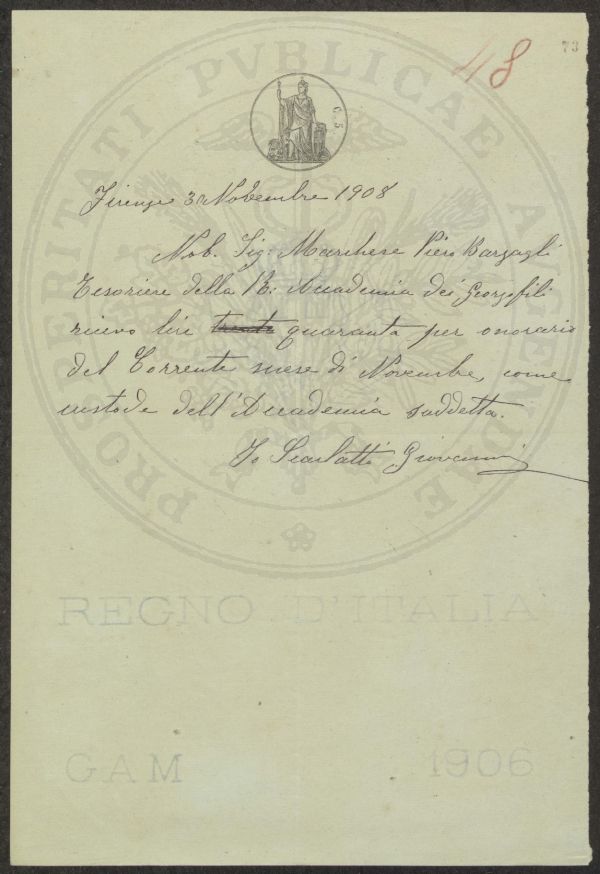 48
73
C. 5
Firenze 30 Novembre 1908
Nob. Sig: Marchese Piero Bargagli
Tesoriere della R: Accademia dei Georgofili
ricevo lire trenta quaranta per onorario
del Corrente mese di Novembre, come
custode dell'Accademia suddetta.
Io Scarlatti Giovanni
PROSPERITATI PVBLICAE AVGENDAE
REGNO D'ITALIA
GAM 1906